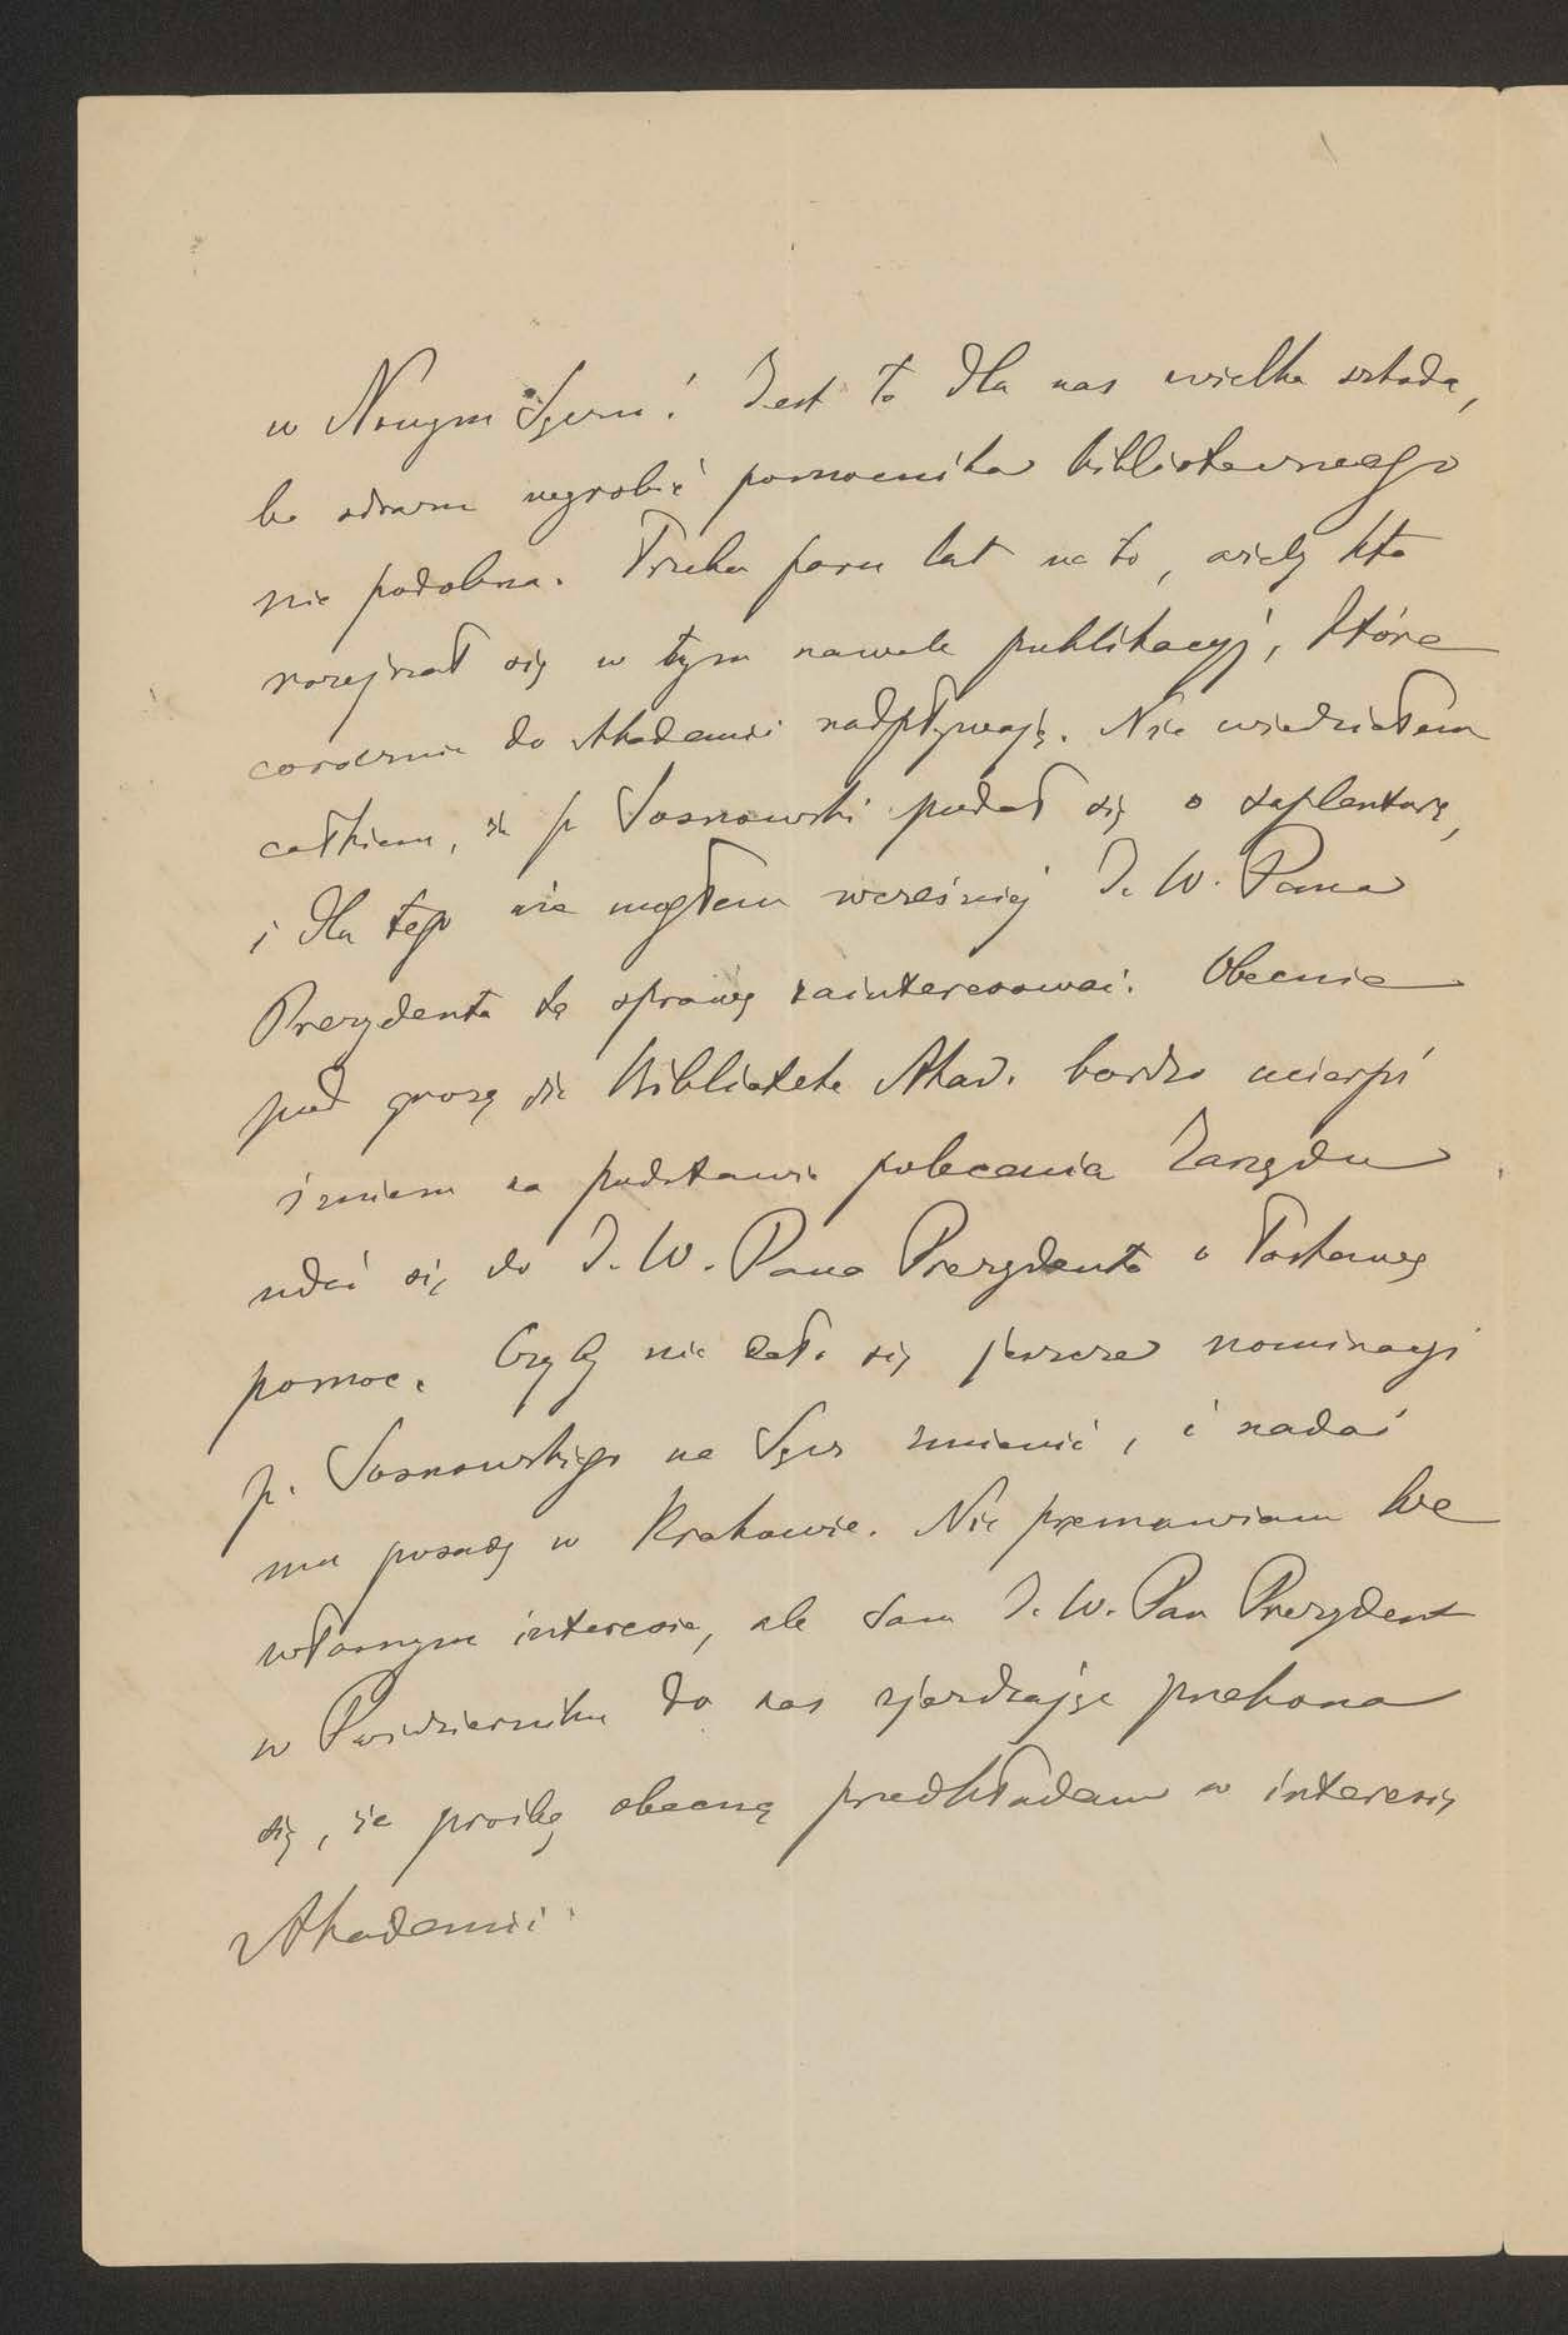 w Nowym Sączu! Jest to dla nas wielka szkoda,
bo odrazu wyrobić pomocnika bibliotecznego
nie podobna. Trzeba paru lat na to, ażeby kto
rozejrzał się w tym nawale publikacyj, które
corocznie do Akademii nadpływają. Nie wiedziałem
całkiem, że p Sosnowski podał się o suplenturę,
i dla tego nie mogłem wcześniej J. W. Pana
Prezydenta tą sprawą zainteresować. Obecnie
pod grozą że Biblioteka Akad. bardzo ucierpi
śmiem na podstawie polecenia Zarządu
udać się do J. W. Pana Prezydenta o łaskawą
pomoc. Czyby nie dało się jeszcze nominacyi
p. Sosnowskiego na Sącz zmienić, i nadać
mu posadę w Krakowie. Nie przemawiam we
własnym interesie, ale sam J. W. Pan Prezydent
w Październiku do nas zjeżdżając przekona
się, że prośbę obecną przedkładam w interesie
Akademii